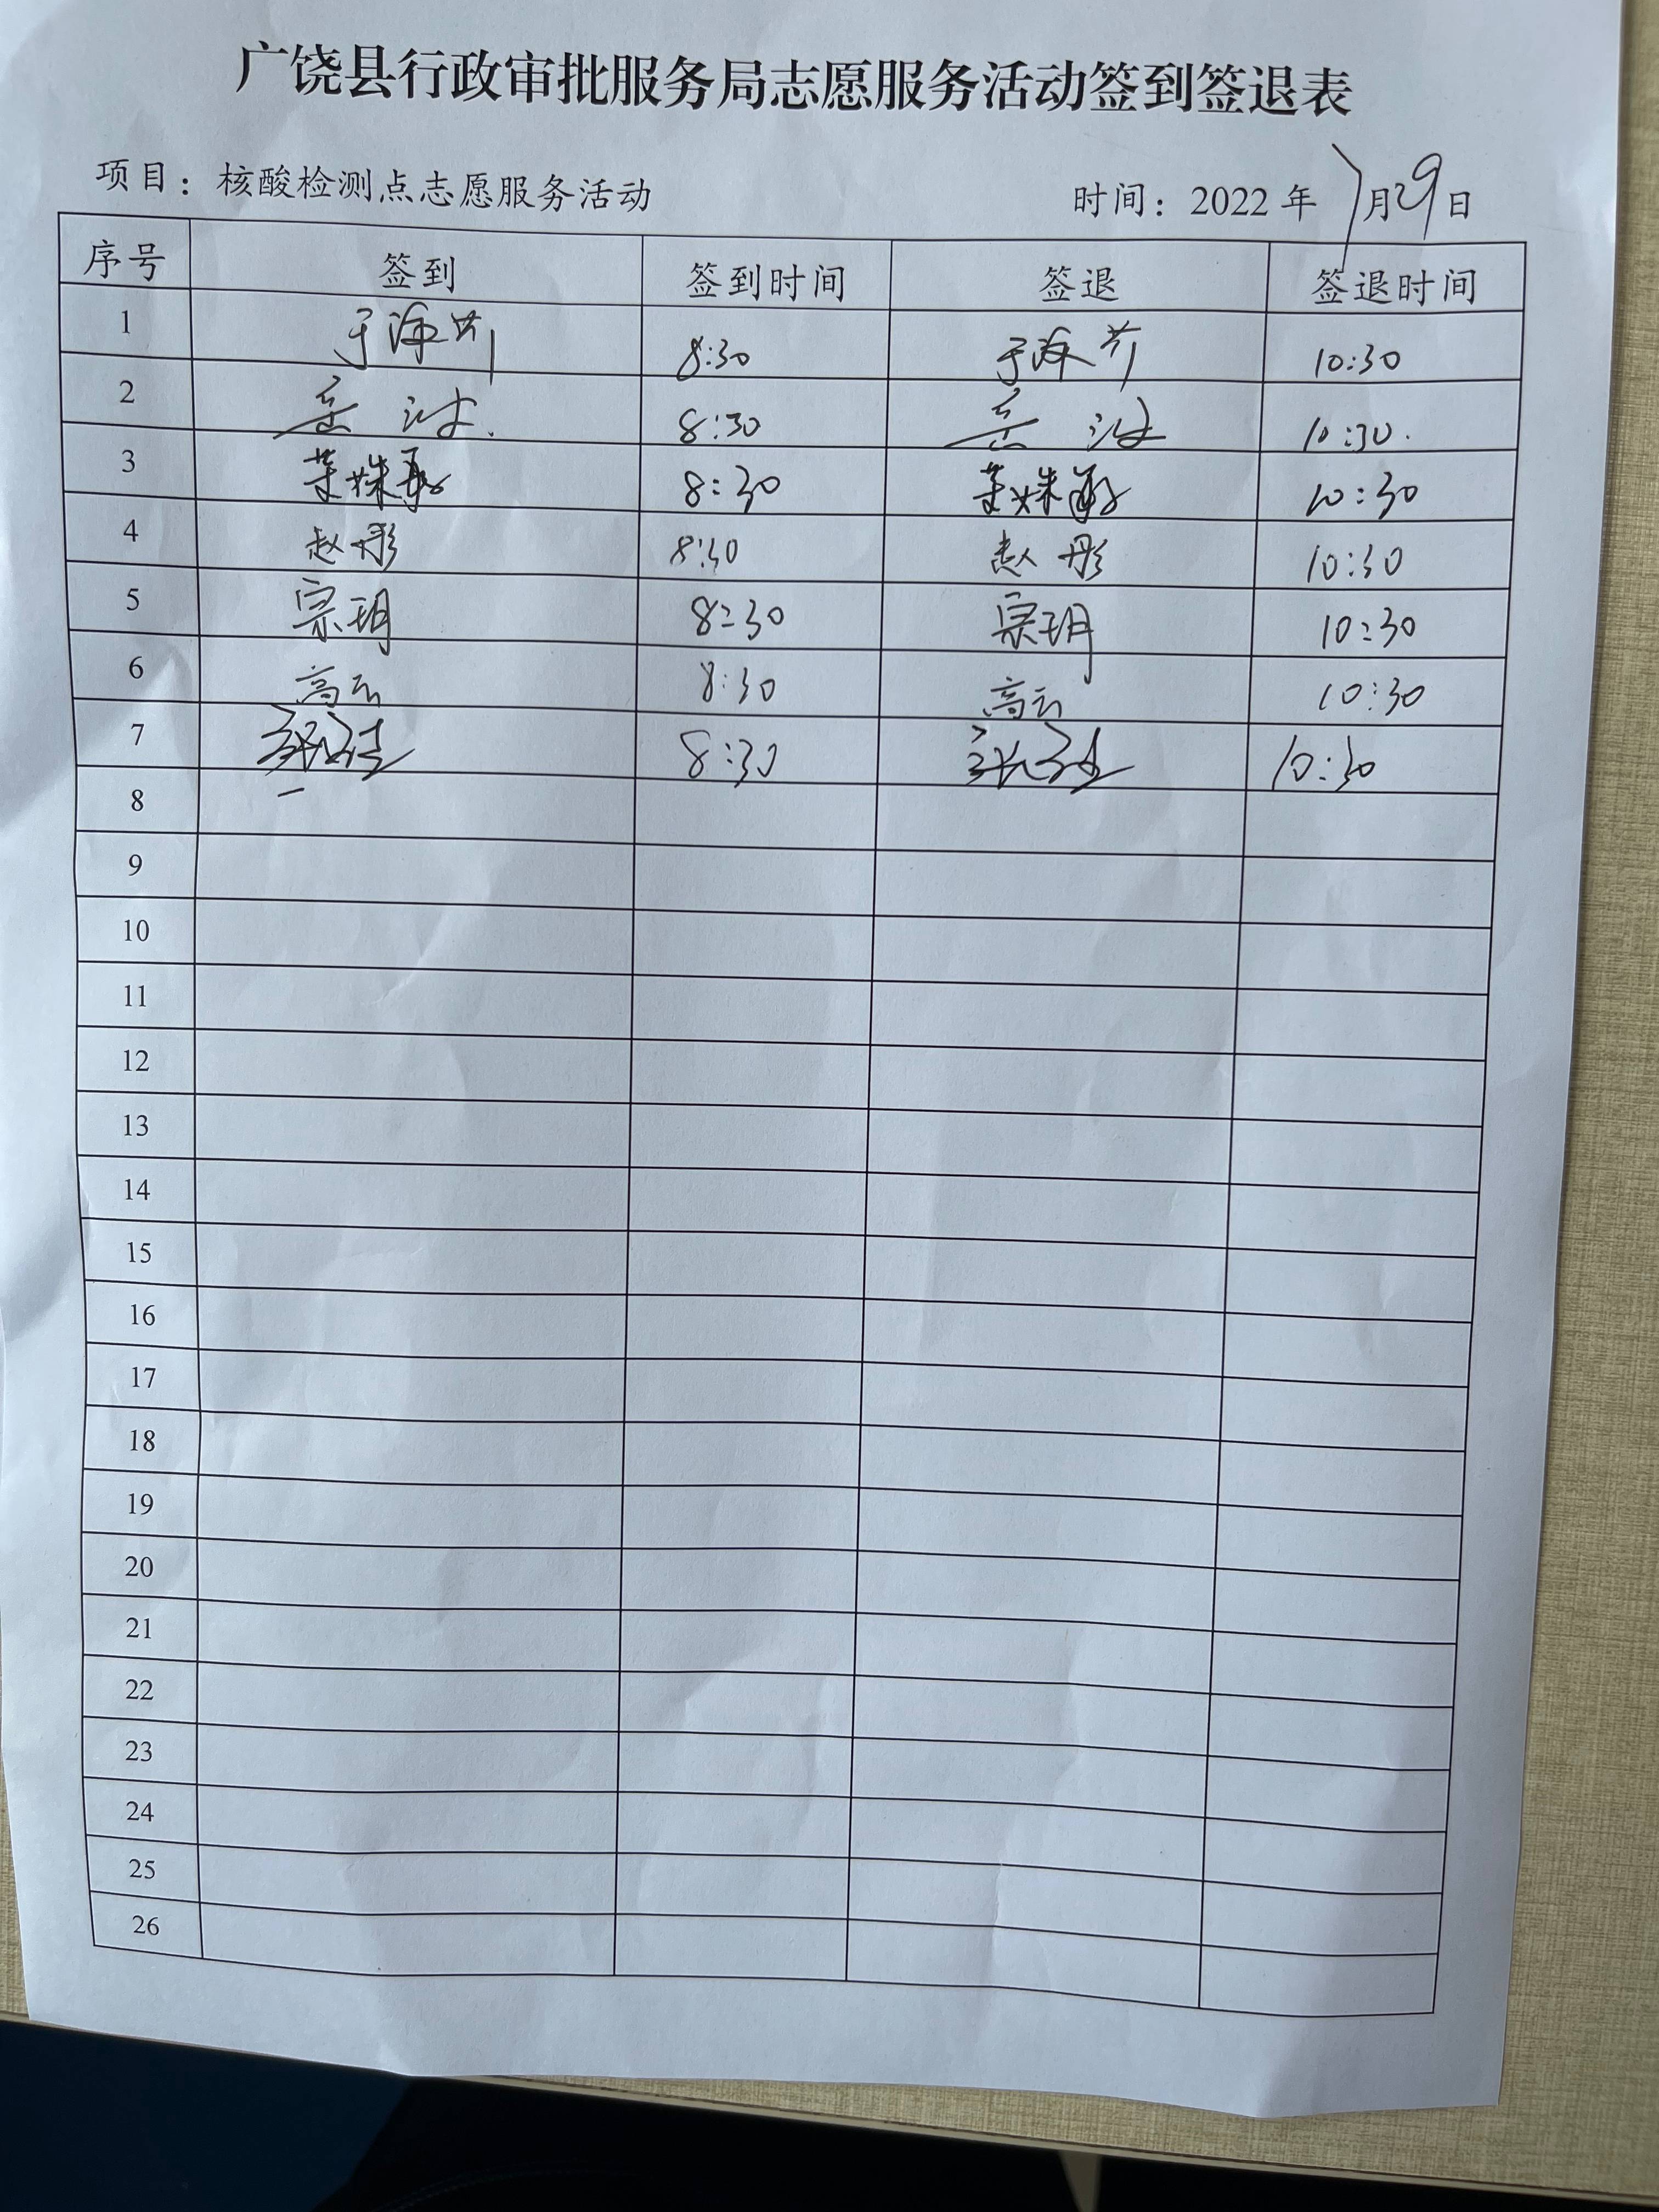 广饶县行政审批服务局志愿服务活动签到签退表
项目：核酸检测点志愿服务活动 时间：2022年7月29日
序号 签到 签到时间 签退 签退时间
1 8:30 10:30
2 8:30 10:30
3 8:30 10:30
4 赵彤 8:30 赵彤 10:30
5 宗玥 8:30 宗玥 10:30
6 高云 8:30 高云 10:30
7 8:30 10:30
8
9
10
11
12
13
14
15
16
17
18
19
20
21
22
23
24
25
26